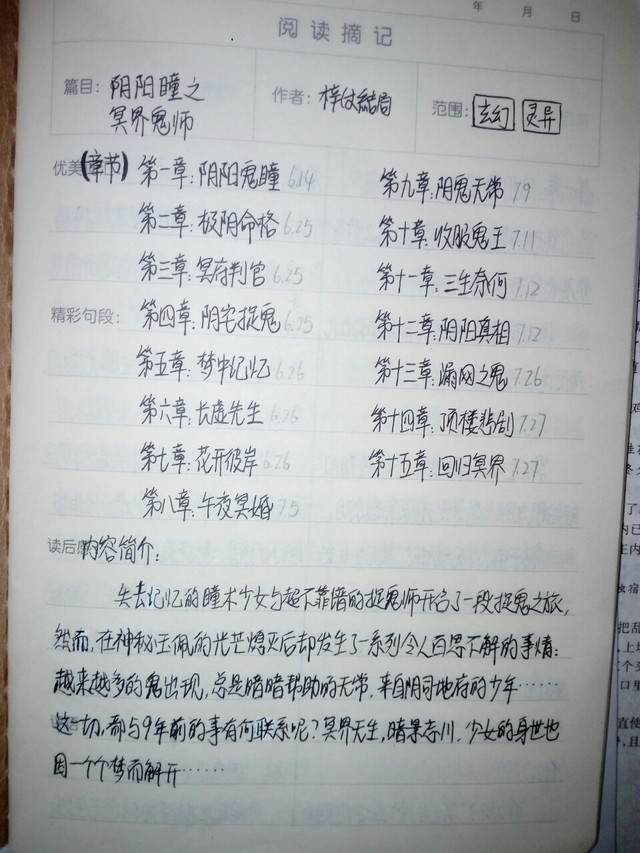 年 月 日
阅读摘记
篇目: 阴阳瞳之
冥界鬼师
作者: 結局
范围: 玄幻 灵异
优美
(章节)
第一章: 阴阳鬼瞳 6.14
第二章: 极阴命格 6.25
第三章: 冥府判官 6.25
精彩句段:
第四章: 阴宅捉鬼 6.25
第五章: 梦中记忆 6.26
第六章: 长虚先生 6.26
第七章: 花开彼岸 6.26
第八章: 午夜冥婚 7.5
第九章: 阴鬼无常 7.9
第十章: 收服鬼王 7.11
第十一章: 三生奈何 7.12
第十二章: 阴阳真相 7.12
第十三章: 漏网之鬼 7.26
第十四章: 顶楼悲剧 7.27
第十五章: 回归冥界 7.27
读后
内容简介:
失去记忆的瞳术少女与超不靠谱的捉鬼师开启了一段捉鬼之旅,
然而,在神秘玉佩的光芒熄灭后却发生了一系列令人百思不解的事情:
越来越多的鬼出现,总是暗暗帮助的无常,来自阴司地府的少年……
这一切,都与9年前的事有何联系呢?冥界无生,暗黑奈川,少女的身世也
因一个个梦而解开……